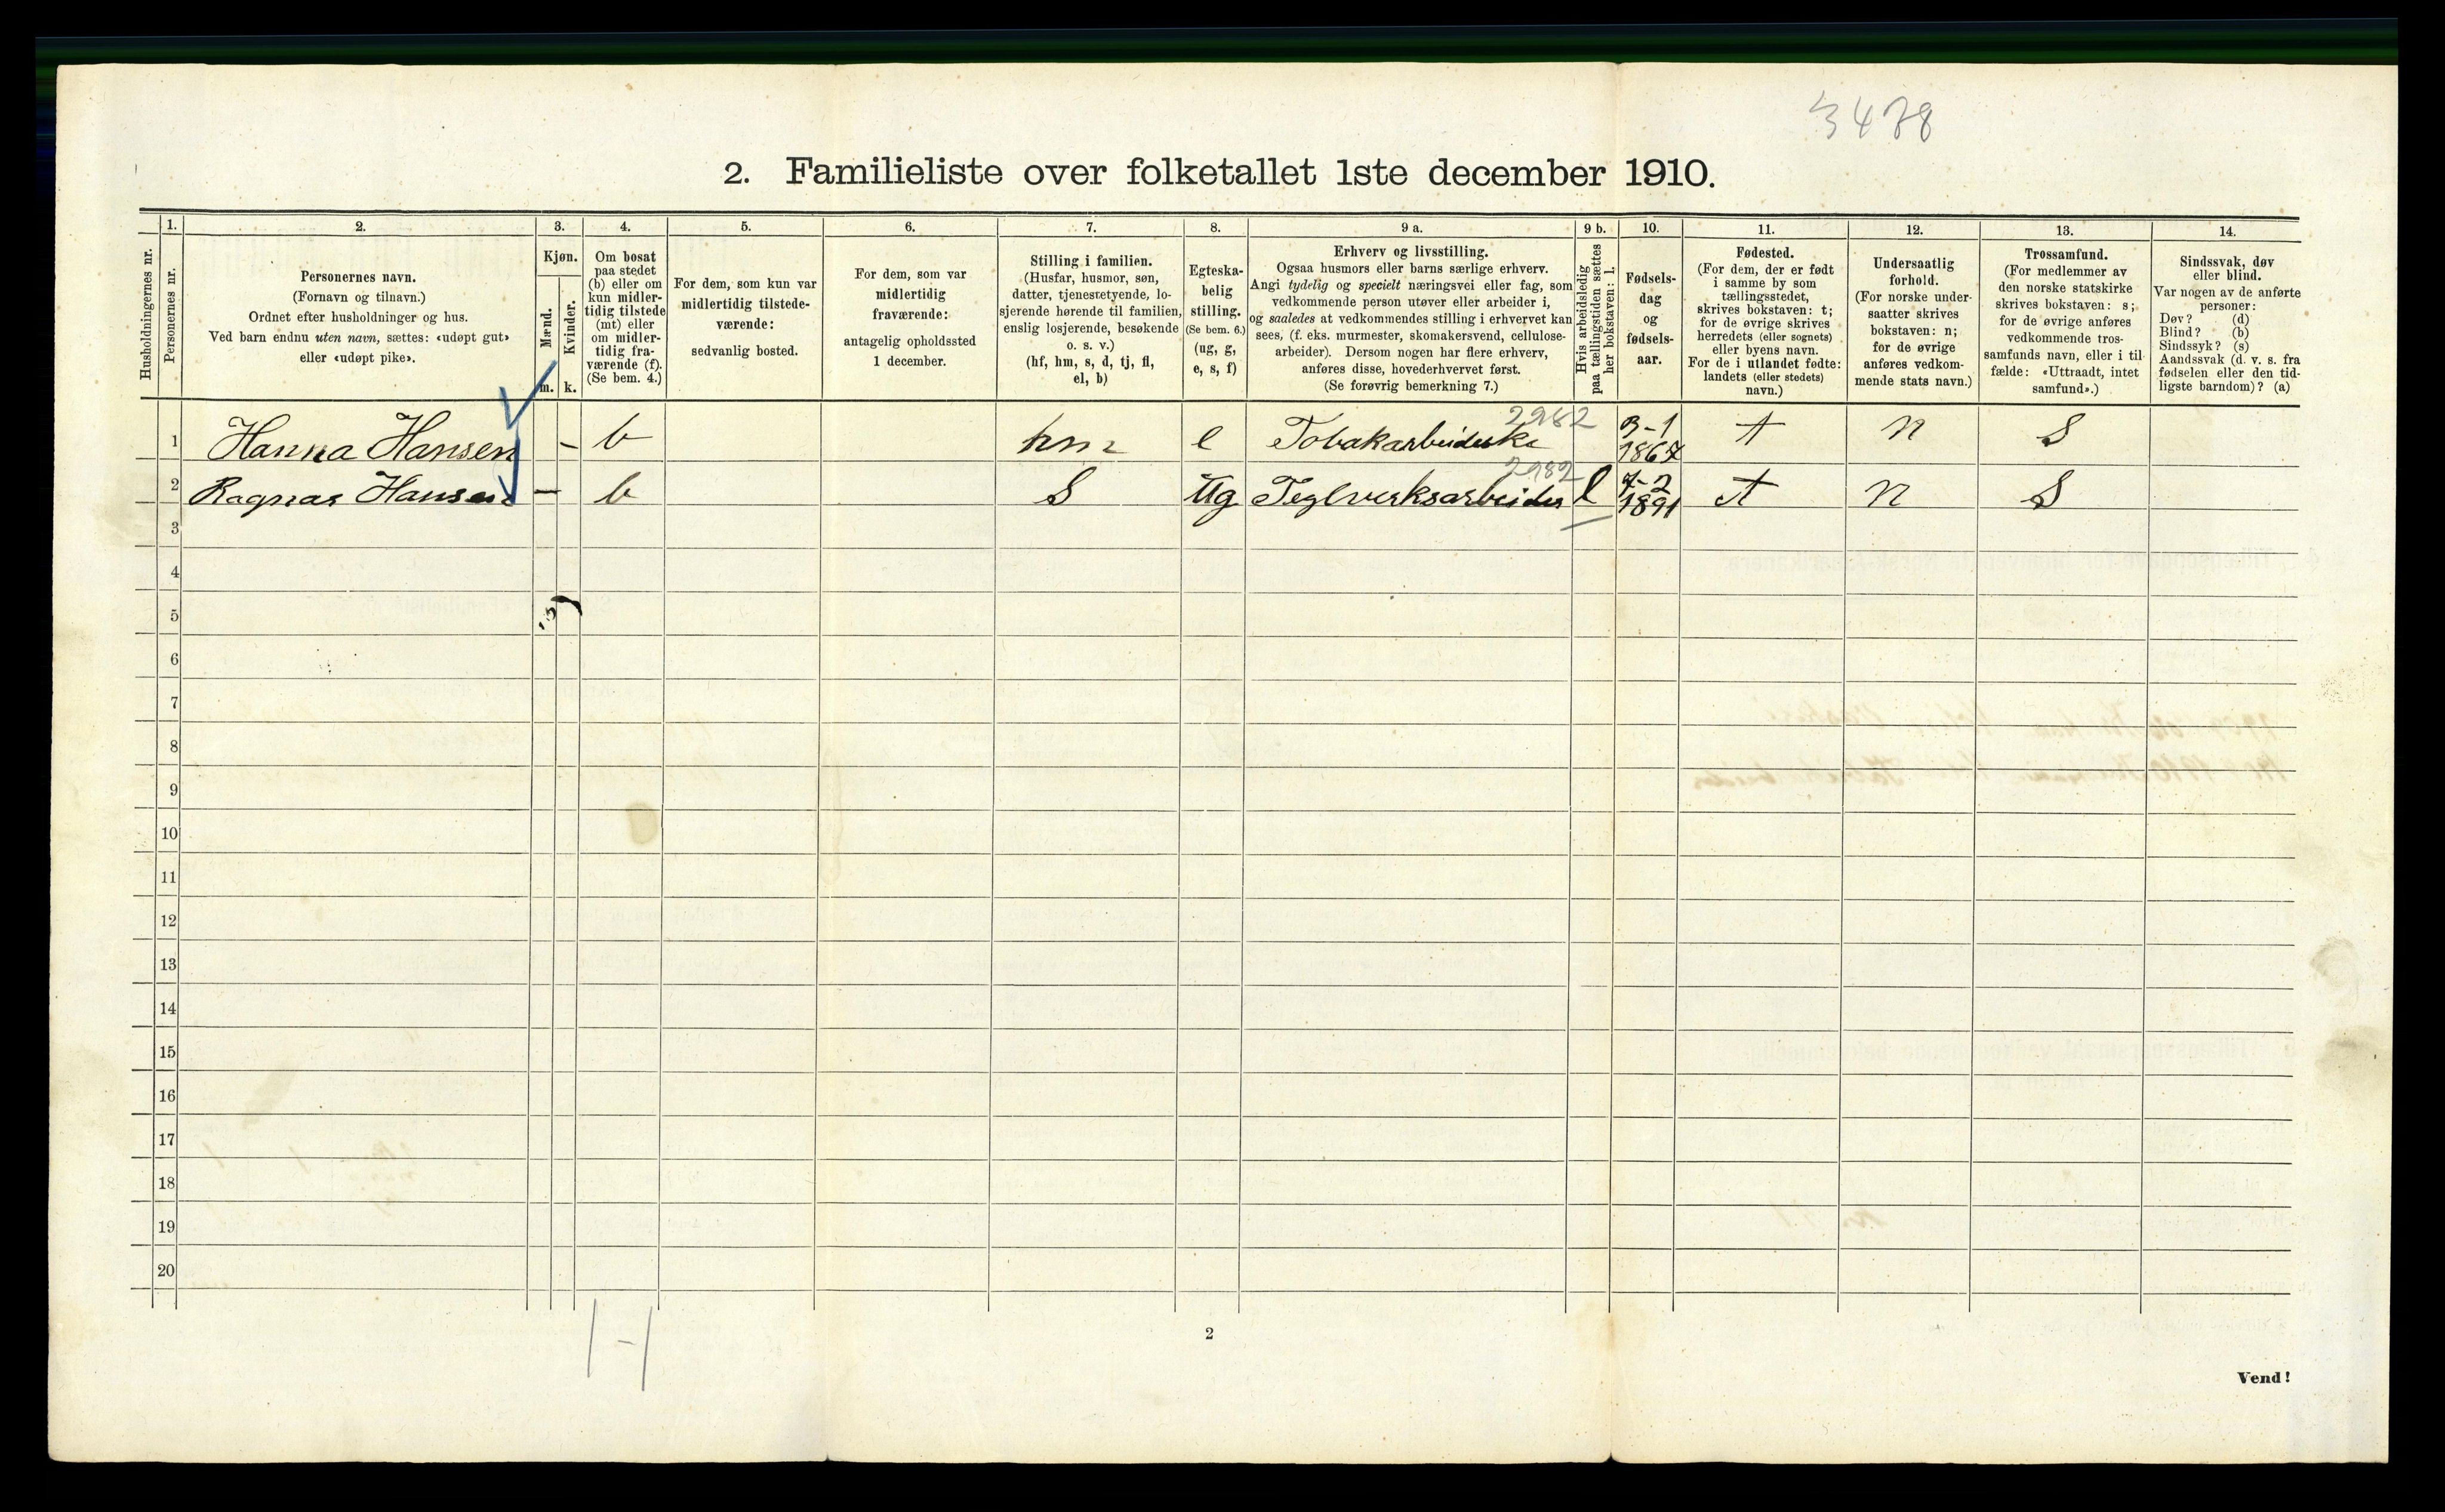 3478
2. Familieliste over folketallet 1ste december 1910.
Husholdningernes nr.
1.
Personernes nr.
2.
Personernes navn.
(Fornavn og tilnavn.)
Ordnet efter husholdninger og hus.
Ved barn endnu uten navn, sættes: «udøpt gut»
eller «udøpt pike».
3.
Kjøn.
Mænd.
m.
Kvinder.
k.
4.
Om bosat
paa stedet
(b) eller om
kun midler-
tidig tilstede
(mt) eller
om midler-
tidig fra-
værende (f).
(Se bem. 4.)
5.
For dem, som kun var
midlertidig tilstede-
værende:
sedvanlig bosted.
6.
For dem, som var
midlertidig
fraværende:
antagelig opholdssted
1 december.
7.
Stilling i familien.
(Husfar, husmor, søn,
datter, tjenestetyende, lo-
sjerende hørende til familien,
enslig losjerende, besøkende
o. s. v.)
(hf, hm, s, d, tj, fl,
el, b)
8.
Egteska-
belig
stilling.
(Se bem. 6.)
(ug, g,
e, s, f)
9 a.
Erhverv og livsstilling.
Ogsaa husmors eller barns særlige erhverv.
Angi tydelig og specielt næringsvei eller fag, som
vedkommende person utøver eller arbeider i,
og saaledes at vedkommendes stilling i erhvervet kan
sees, (f. eks. murmester, skomakersvend, cellulose-
arbeider). Dersom nogen har flere erhverv,
anføres disse, hovederhvervet først.
(Se forøvrig bemerkning 7.)
9 b.
Hvis arbeidsledig
paa tællingstiden sættes
her bokstaven: l.
10.
Fødsels-
dag
og
fødsels-
aar.
11.
Fødested.
(For dem, der er født
i samme by som
tællingsstedet,
skrives bokstaven: t;
for de øvrige skrives
herredets (eller sognets)
eller byens navn.
For de i utlandet fødte:
landets (eller stedets)
navn.)
12.
Undersaatlig
forhold.
(For norske under-
saatter skrives
bokstaven: n;
for de øvrige
anføres vedkom-
mende stats navn.)
13.
Trossamfund.
(For medlemmer av
den norske statskirke
skrives bokstaven: s;
for de øvrige anføres
vedkommende tros-
samfunds navn, eller i til-
fælde: «Uttraadt, intet
samfund».)
14.
Sindssvak, døv
eller blind.
Var nogen av de anførte
personer:
Døv? (d)
Blind? (b)
Sindssyk? (s)
Aandssvak (d. v. s. fra
fødselen eller den tid-
ligste barndom)? (a)
1 Hanna Hansen – b hm e Tobakarbeiderske 2982 3-1 1867 t n S
2 Ragnar Hansen — b S Ug Teglverksarbeider 2982 l 7-2 1891 t n S
3
4
5
6
7
8
9
10
11
12
13
14
15
16
17
18
19
20
1-1
2
Vend!